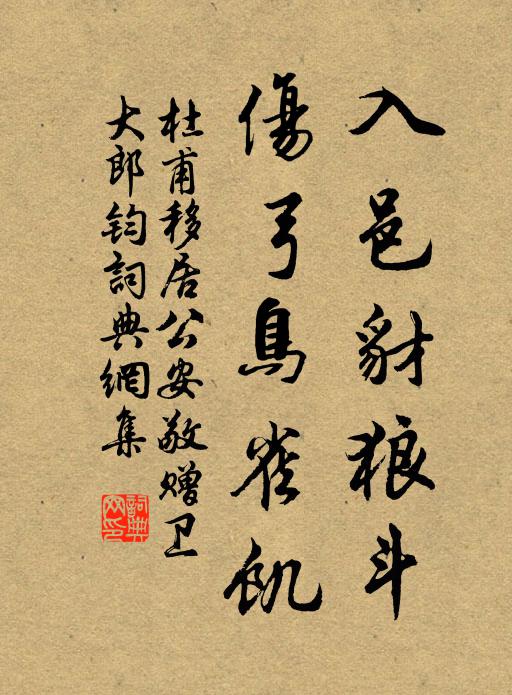 入邑豺狼斗
傷弓鳥雀飢
杜甫移居公安敬贈卫
大郎钧詞典網集
詞典
网印